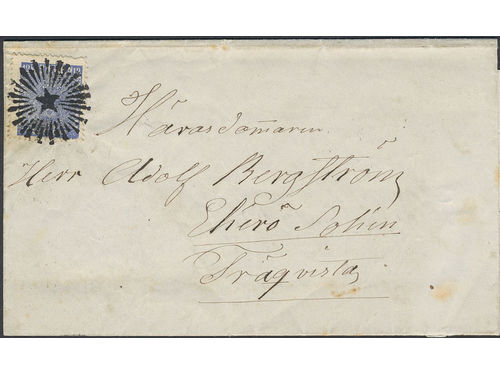 Häradsdomaren
Herr Adolf Bergström
Ekerö Sohen
Träqvista